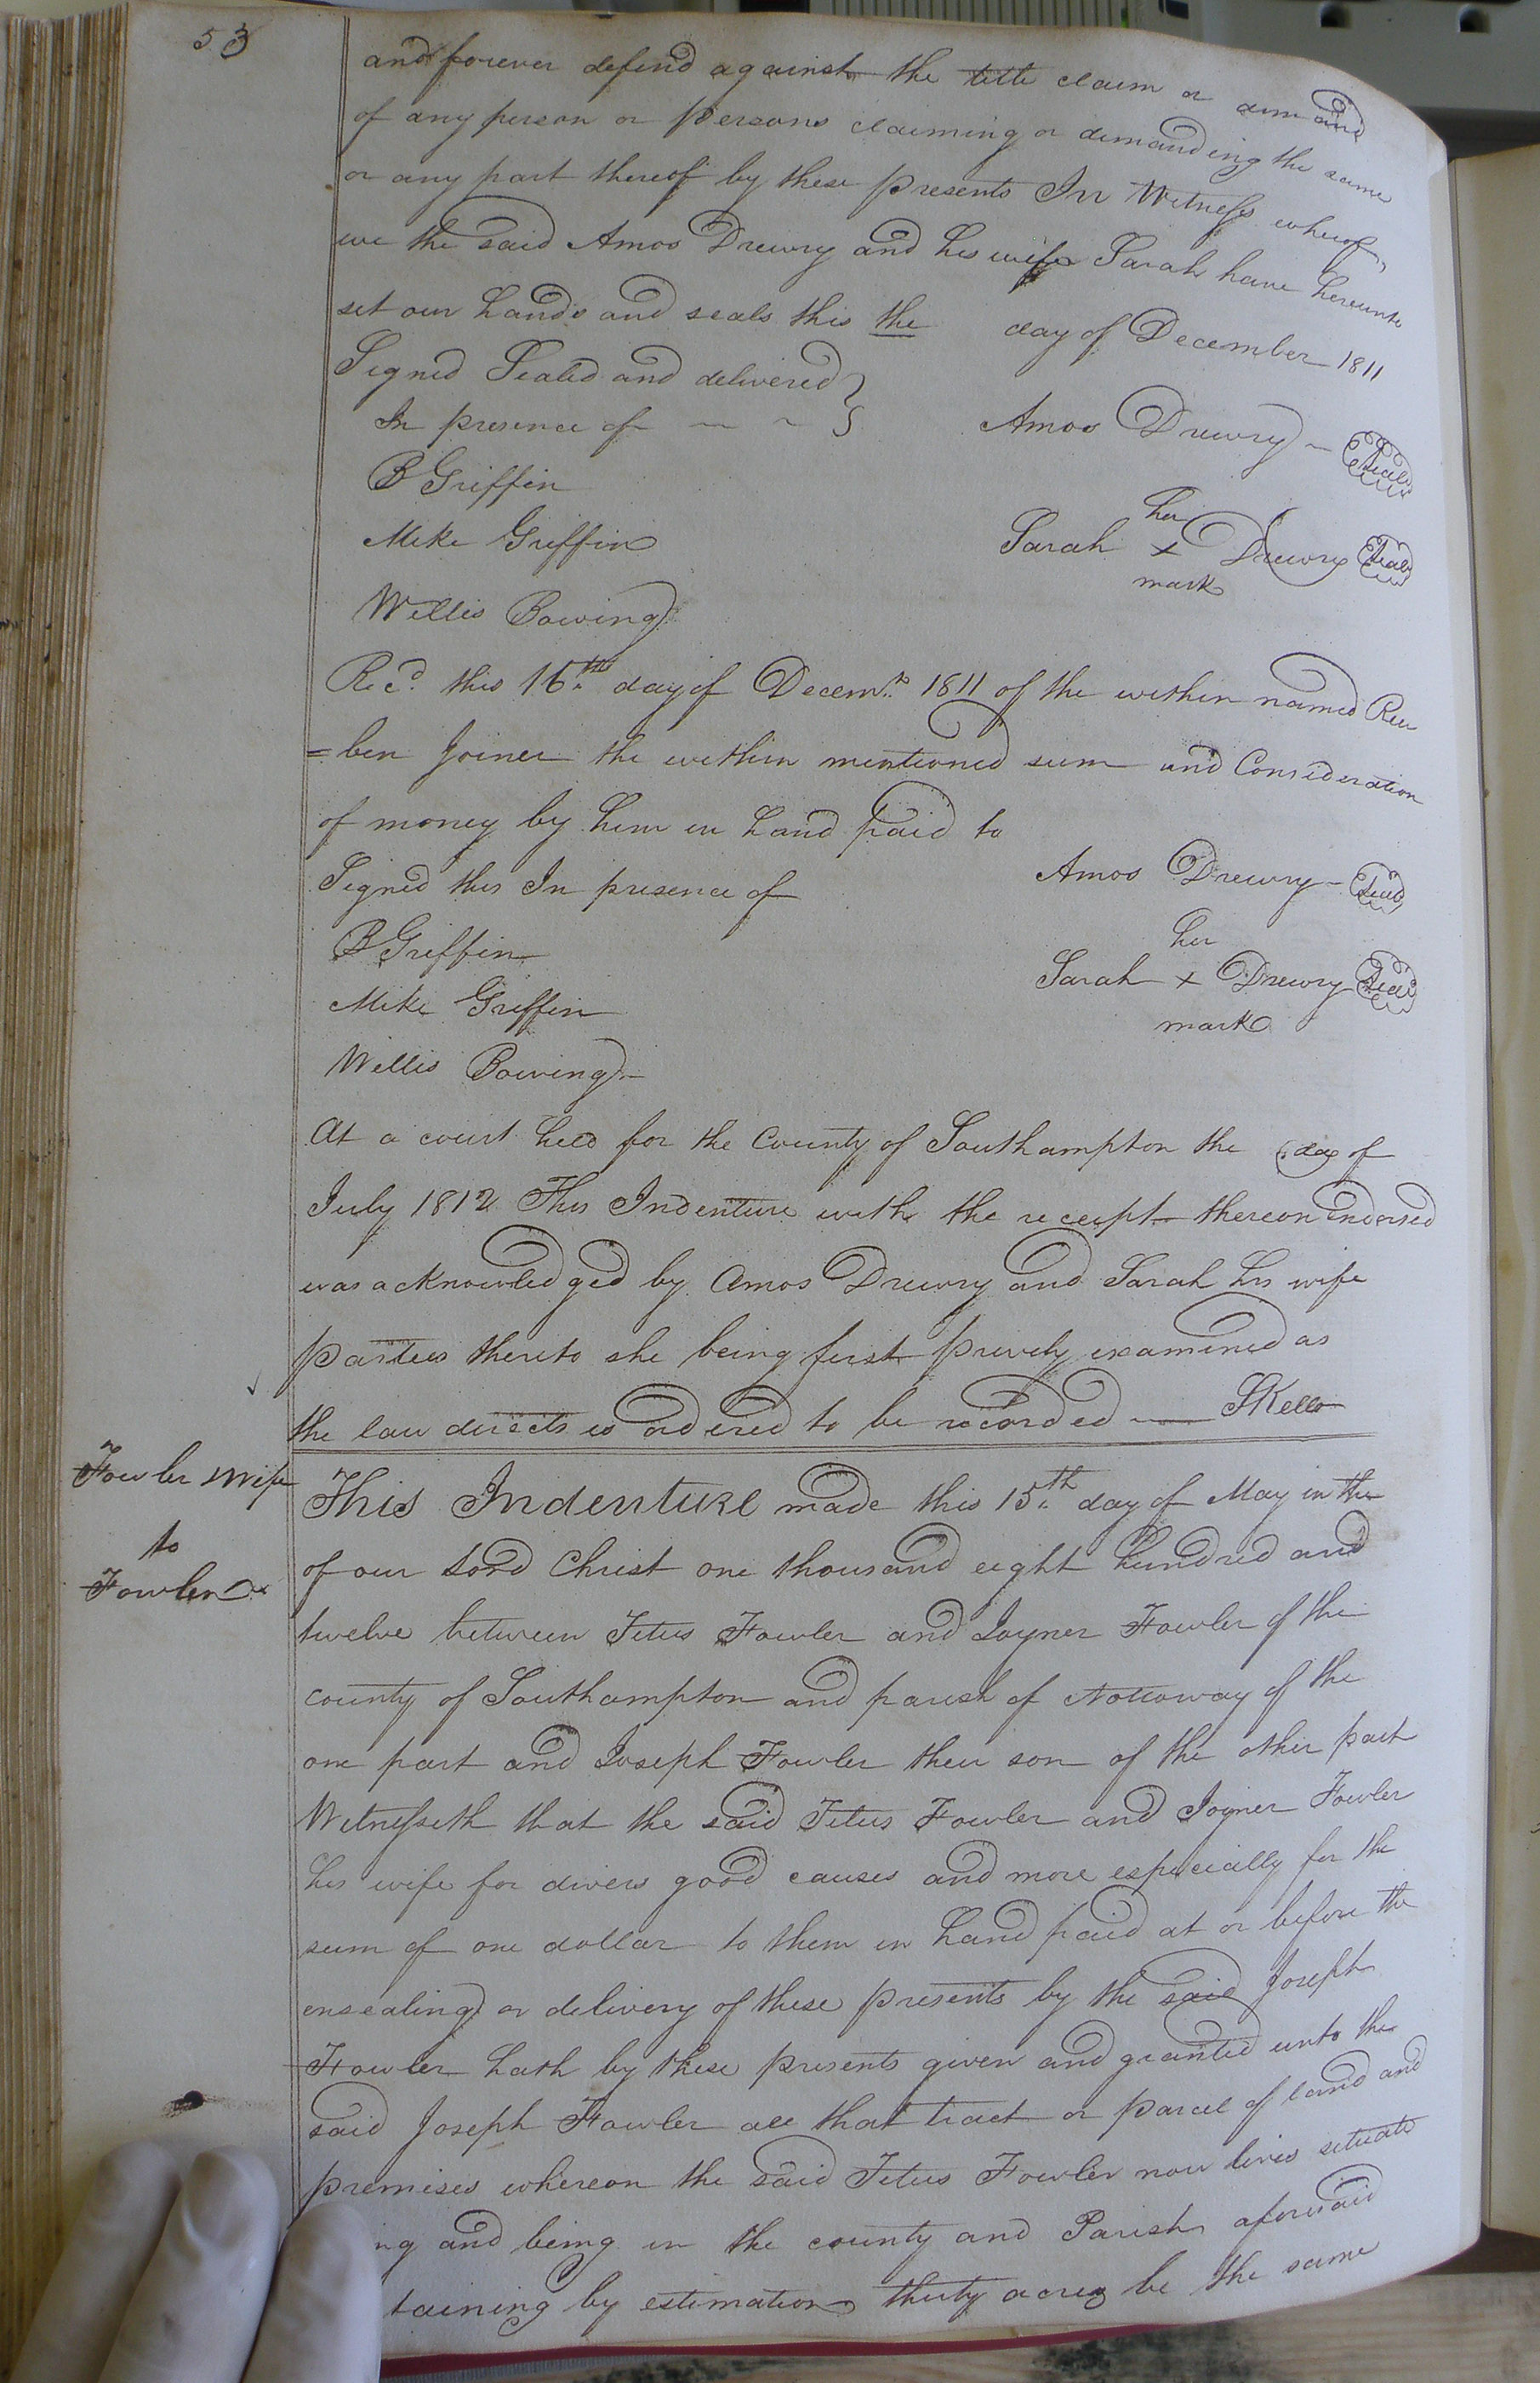 53
and forever defend against the title claim or demand
of any person or persons claiming or demanding the same
or any part thereof by these presents In Witness whereof
we the said Amos Drewry and his wife Sarah have hereunto
set our hands and seals this the day of December 1811
Signed Sealed and delivered }
In presence of ~ ~ }
Amos Drewry ~ Seal
B Griffin
her
Mike Griffin
Sarah x Drewry Seal
mark
Willis Bowing
Recd. this 16th day of Decemr. 1811 of the within named Reu
=ben Joiner the within mentioned sum and Consideration
of money by him in hand paid to
Signed this In presence of
Amos Drewry ~ Seal
B Griffin
her
Sarah x Drewry Seal
Mike Griffin
mark
Willis Bowing ~
At a court held for the County of Southampton the day of
July 1812 This Indenture with the receipt thereon endorsed
was acknowledged by Amos Drewry and Sarah his wife
parties thereto she being first privily examined as
the law directs is ordered to be recorded — SKello
Fowler & Wife
to
Fowler
This Indenture made this 15th day of May in the
of our Lord Christ one thousand eight hundred and
twelve between Titus Fowler and Joyner Fowler of the
county of Southampton and parish of Nottoway of the
one part and Joseph Fowler their son of the other part
Witnesseth that the said Titus Fowler and Joyner Fowler
his wife for divers good causes and more especially for the
sum of one dollar to them in hand paid at or before the
ensealing or delivery of these presents by the said Joseph
Fowler hath by these presents given and granted unto the
said Joseph Fowler all that tract or parcel of land and
premises whereon the said Titus Fowler now lives situate
ng and being in the county and Parish aforesaid
taining by estimation thirty acres be the same